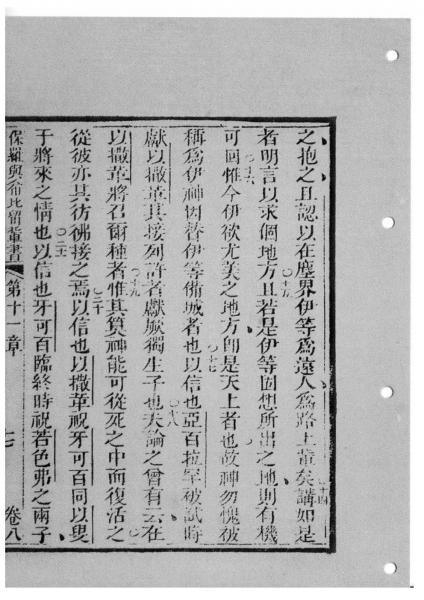 之抱之且認以在塵界伊等為遠人為路上輩矣○十四講如是
者明言以求個地方○十五且若是伊等回想所出之地則有機
可回○十六惟今伊欲尤美之地方即是天上者也故神勿愧被
稱為伊神因替伊等備城者也○十七以信也亞百拉罕被試時
獻以撒革其接列許者獻厥獨生子也○十八夫論之曾有云在
以撒革將召爾種者○十九惟其算神能可從死之中而復活之
從彼亦其彷彿接之焉○二十以信也以撒革祝牙可百同以叟
于將來之情也○二一以信也牙可百臨終時祝若色弗之兩子
保羅與希比留輩書 第十一章 七 卷八